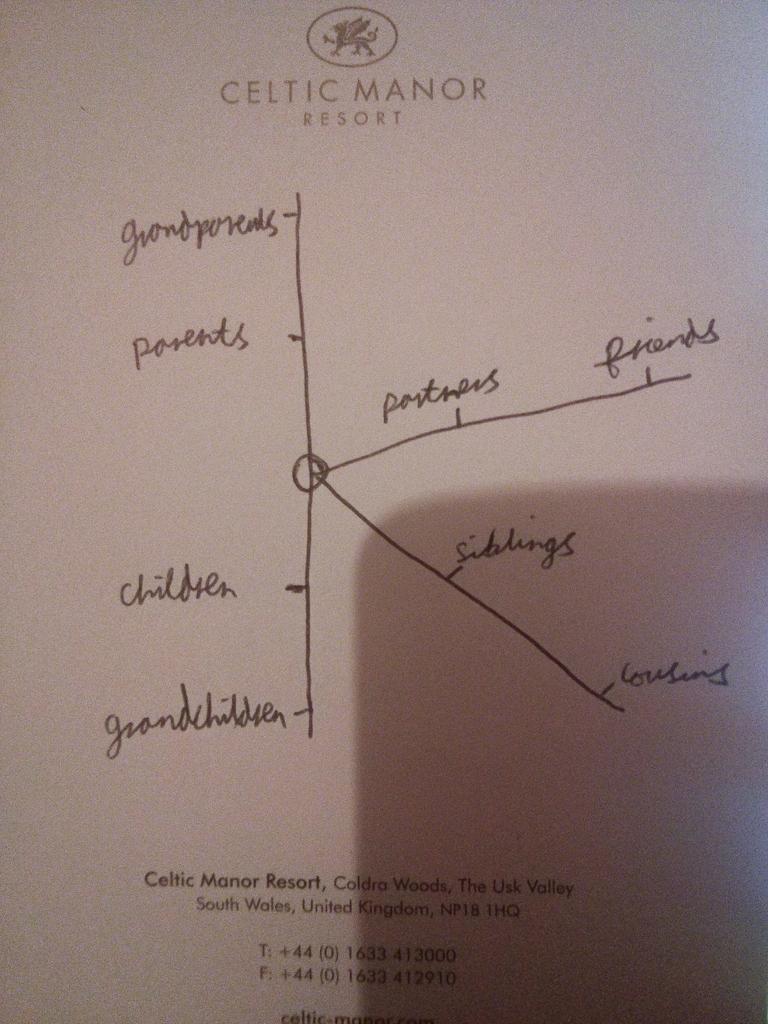 CELTIC MANOR
RESORT
grandparents
parents
friends
partners
siblings
children
cousins
grandchildren
Celtic Manor Resort, Coldra Woods, The Usk Valley
South Wales, United Kingdom, NP18 1HQ
T: +44 (0) 1633 413000
F: +44 (0) 1633 412910
celtic-manor.com